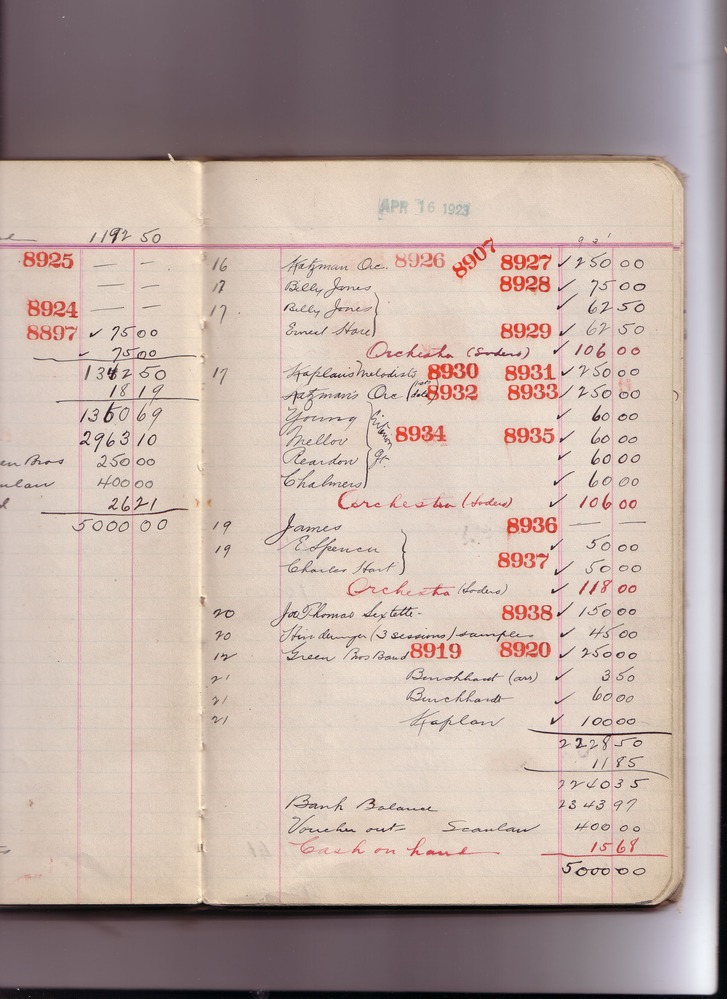 1192 50
8925 — —
— —
8924 — —
8897 ✓ 75 00
✓ 75 00
1342 50
18 19
1360 69
2963 10
en Bros 250 00
400 00
26 21
5000 00
APR 16 1923
16 Katzman Orc. 8926 8907 8927 ✓ 250 00
17 Billy Jones 8928 ✓ 75 00
17 Billy Jones ✓ 62 50
Ernest Hare 8929 ✓ 62 50
Orchestra (Soders) ✓ 106 00
17 Kaplan's Melodists 8930 8931 ✓ 250 00
Katzman's Orc 8932 8933 ✓ 250 00
Young ✓ 60 00
Mellor Criterion Qt. 8934 8935 ✓ 60 00
Reardon ✓ 60 00
Chalmers ✓ 60 00
Orchestra (Soders) ✓ 106 00
19 James 8936 — —
19 E Spencer ✓ 50 00
Charles Hart 8937 ✓ 50 00
Orchestra (Soders) ✓ 118 00
20 Joe Thomas Sextette - 8938 ✓ 150 00
20 (3 sessions) samples ✓ 45 00
12 Green Bros Band 8919 8920 ✓ 250 00
21 Burckhardt (arr) ✓ 3 50
21 Burckhardt ✓ 60 00
21 Kaplan ✓ 100 00
2228 50
11 85
2240 35
Bank Balance 2343 97
Voucher out - Scanlan 400 00
Cash on hand 15 68
5000 00